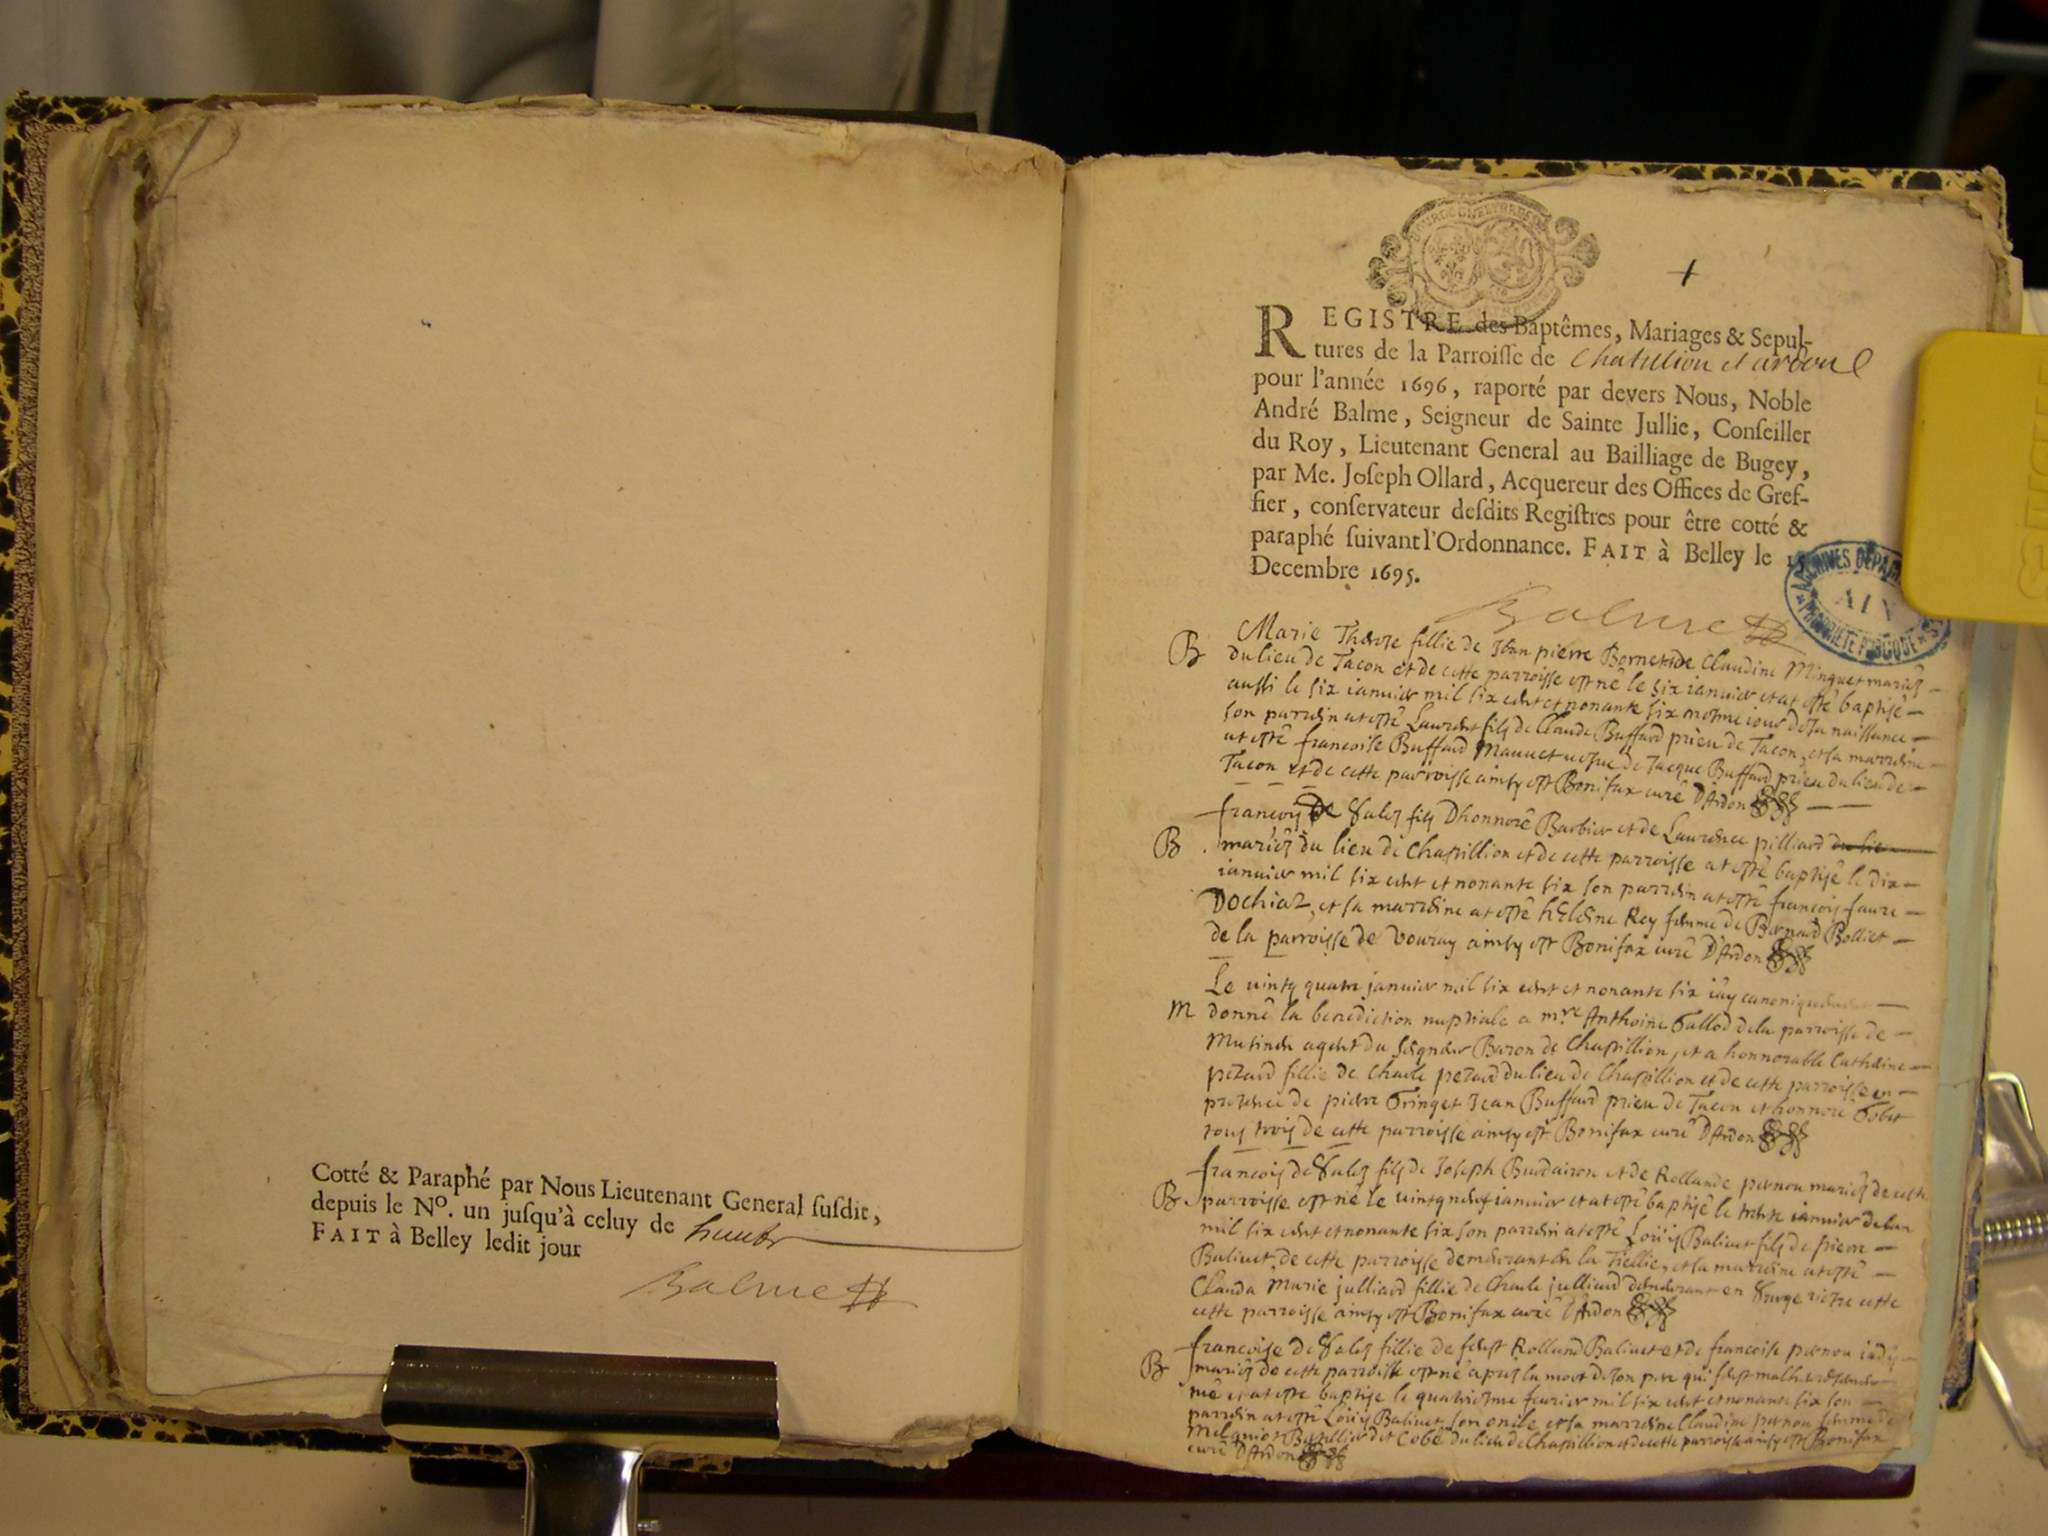 Cotté & Paraphé par Nous Lieutenant General susdit,
depuis le Nº. un jusqu'à celuy de huit
FAIT à Belley ledit jour
Balme
REGISTRE des Baptêmes, Mariages & Sepul-
tures de la Parroisse de Chatillion et ardon
pour l'année 1696, raporté par devers Nous, Noble
André Balme, Seigneur de Sainte Jullie, Conseiller
du Roy, Lieutenant General au Bailliage de Bugey,
par Me. Joseph Ollard, Acquereur des Offices de Gref-
fier, conservateur desdits Registres pour être cotté &
paraphé suivant l'Ordonnance. FAIT à Belley le 15
Decembre 1695.
ARCHIVES DEPAR
AIN
PROPRIETE PUBLIQUE
Balme
Marie Therese fillie de Jean pierre Bornet et de Claudine Minguet mariés
B du lieu de Tacon et de cette parroisse est né le six ianvier et at esté baptisé
aussi le six ianvier mil six cent et nonante six mesme iour de sa naissance
son parrein at esté Laurent fils de Claude Buffard prieu de Tacon, et sa marreine
at esté francoise Buffard Mauuet vefue de Jacque Buffard prieu du lieu de
Tacon et de cette parroisse ainsy est Bonifax curé D'Ardon
francois De Sales fils D'honnoré Barbier et de Laurence pilliard du lie
B mariés du lieu de Chastillion et de cette parroisse at esté baptisé le dix
ianvier mil six cent et nonante six son parrein at esté francois faure
Dochiaz, et sa marreine at esté héleine Rey femme de Bernard Bolliet
de la parroisse de Vouray ainsy est Bonifax curé D'Ardon
Le vintg quatre janvier mil six cent et nonante six i'ay canoniquement
M donné la benediction nuptiale a mre Anthoine Tallod de la parroisse de
Musinen agent du seigneur Baron de Chastillion, et a honnorable Catherine
perard fillie de Charle perard du lieu de Chastillion et de cette parroisse en
presence de pierre Tringet Jean Buffard prieu de Tacon et honnoré Gobet
tous trois de cette parroisse ainsy est Bonifax curé D'Ardon
francois de Sales fils de Joseph Burdairon et de Rollande pernou mariés de cette
B parroisse est né le vintg neuf ianvier et at esté baptisé le trente ianvier de l'an
mil six cent et nonante six son parrein at esté Loüis Balivet fils de pierre
Balivet de cette parroisse demeurant en la Tiellie, et sa marreine at esté
Clauda Marie julliard fillie de Charle julliard demeurant en rierre cette
cette parroisse ainsy est Bonifax curé D'Ardon
francoise de Sales fillie de feust Rolland Balivet et de francoise pernou iadis
B mariés de cette parroisse est né apres la mort de son pere qui
né et at esté baptisé le quatriesme feurier mil six cent et nonante six son
parrein at esté Loüis Balivet son oncle et sa marreine Claudine pernou femme de
dit Cobé du lieu de Chastillion et de cette parroisse ainsy est Bonifax
curé D'Ardon